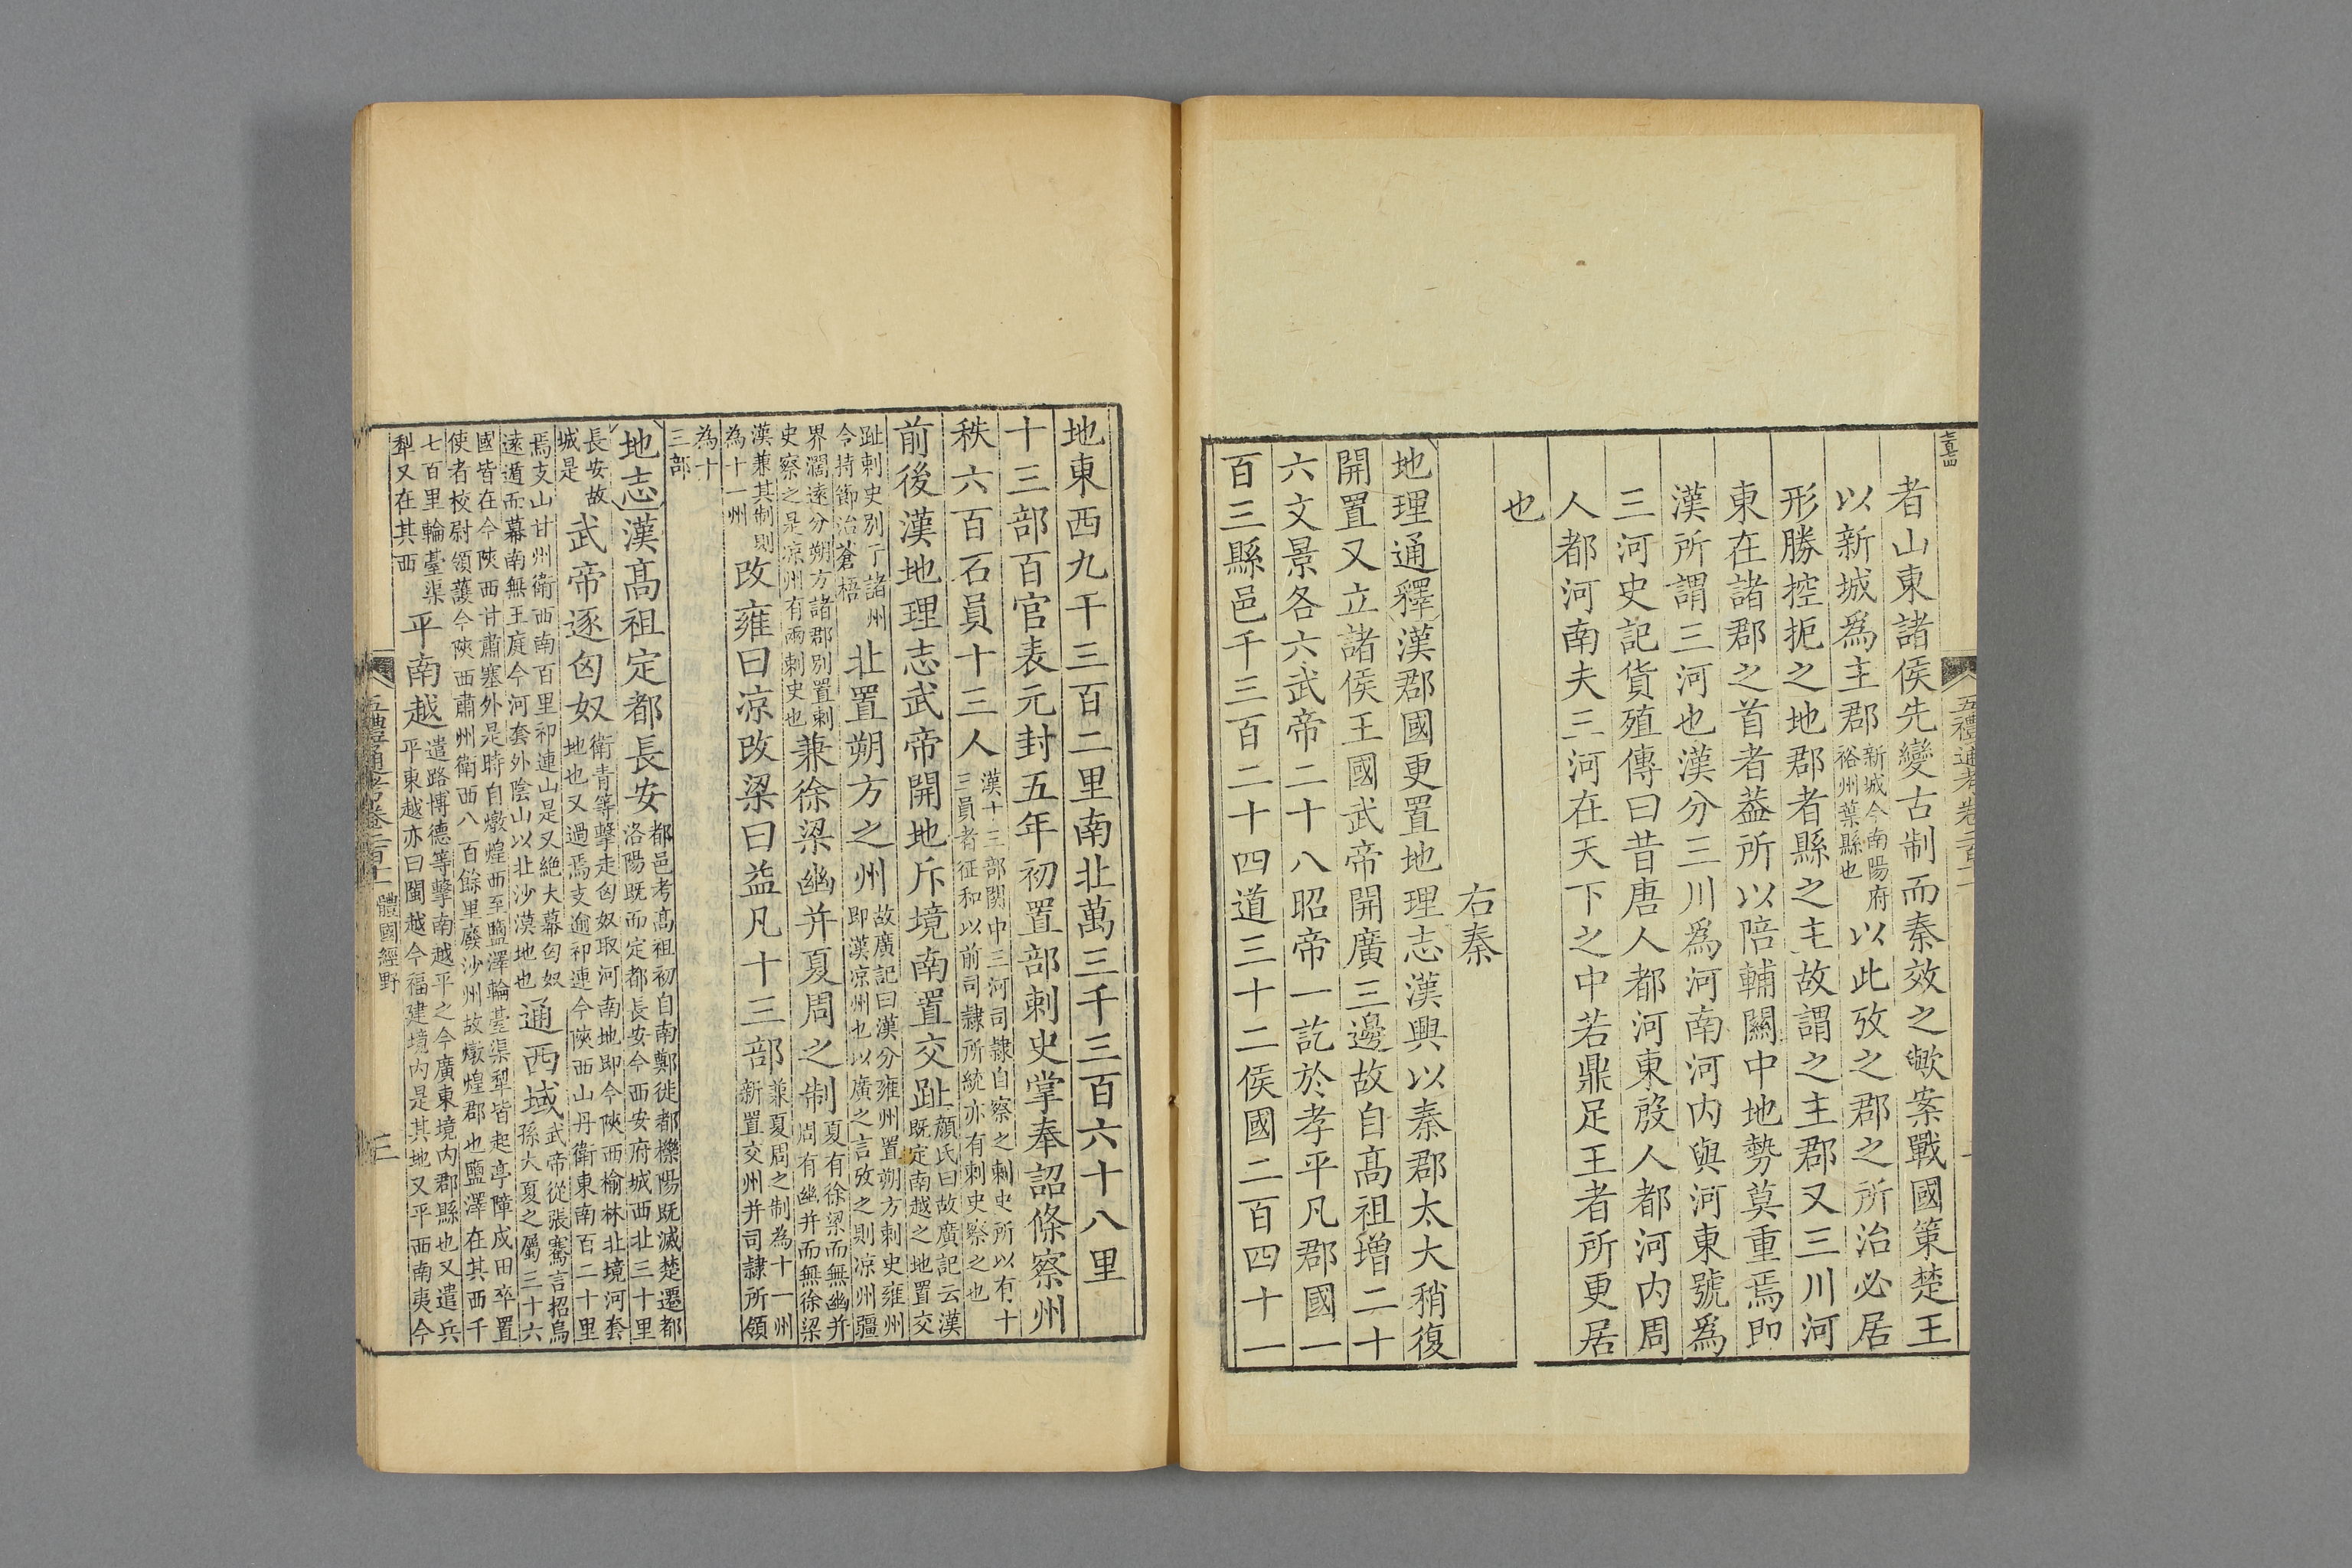 者山東諸侯先變古制而秦效之歟案戰國策楚王
以新城爲主郡新城今南陽府裕州葉縣也以此攷之郡之所治必居
形勝控扼之地郡者縣之主故謂之主郡又三川河
東在諸郡之首者葢所以陪輔關中地勢莫重焉即
漢所謂三河也漢分三川爲河南河内與河東號爲
三河史記貨殖傳曰昔唐人都河東殷人都河内周
人都河南夫三河在天下之中若鼎足王者所更居
也
右秦
地理通釋漢郡國更置地理志漢興以秦郡太大稍復
開置又立諸侯王國武帝開廣三邊故自高祖增二十
六文景各六武帝二十八昭帝一訖於孝平凡郡國一
百三縣邑千三百二十四道三十二侯國二百四十一
五禮通考卷二百
地東西九千三百二里南北萬三千三百六十八里
十三部百官表元封五年初置部刺史掌奉詔條察州
秩六百石員十三人漢十三部關中三河司隸自察之刺史所以有十三員者征和以前司隸所統亦有刺史察之也
前後漢地理志武帝開地斥境南置交趾顔氏曰故廣記云漢既定南越之地置交
趾刺史别于諸州令持節治蒼梧北置朔方之州故廣記曰漢分雍州置朔方刺史雍州即漢凉州也以廣之言攷之則凉州疆
界濶遠分朔方諸郡別置刺史察之是凉州有兩刺史也兼徐梁幽并夏周之制夏有徐梁而無幽并周有幽并而無徐梁
漢兼其制則為十一州改雍曰凉改梁曰益凡十三部兼夏周之制為十一州新置交州并司隷所領
為十三部
地志漢髙祖定都長安都邑考髙祖初自南鄭徙都櫟陽既滅楚遷都洛陽既而定都長安今西安府城西北三十里
長安故城是武帝逐匈奴衛青等擊走匈奴取河南地即今陜西榆林北境河套地也又過焉支逾祁連今陜西山丹衛東南百二十里
焉支山甘州衛西南百里祁連山是又絶大幕匈奴遠遁而幕南無王庭今河套外陰山以北沙漠地也通西域武帝從張騫言招烏孫大夏之屬三十六
國皆在今陜西甘肅塞外是時自燉煌西至鹽澤輪臺渠犁皆起亭障戍田卒置使者校尉領護今陜西肅州衛西八百餘里廢沙州故燉煌郡也鹽澤在其西千
七百里輪臺渠犁又在其西平南越遣路博德等擊南越平之今廣東境内郡縣也又遣兵平東越亦曰閩越今福建境内是其地又平西南夷今
五禮通考卷二百 體國經野 三